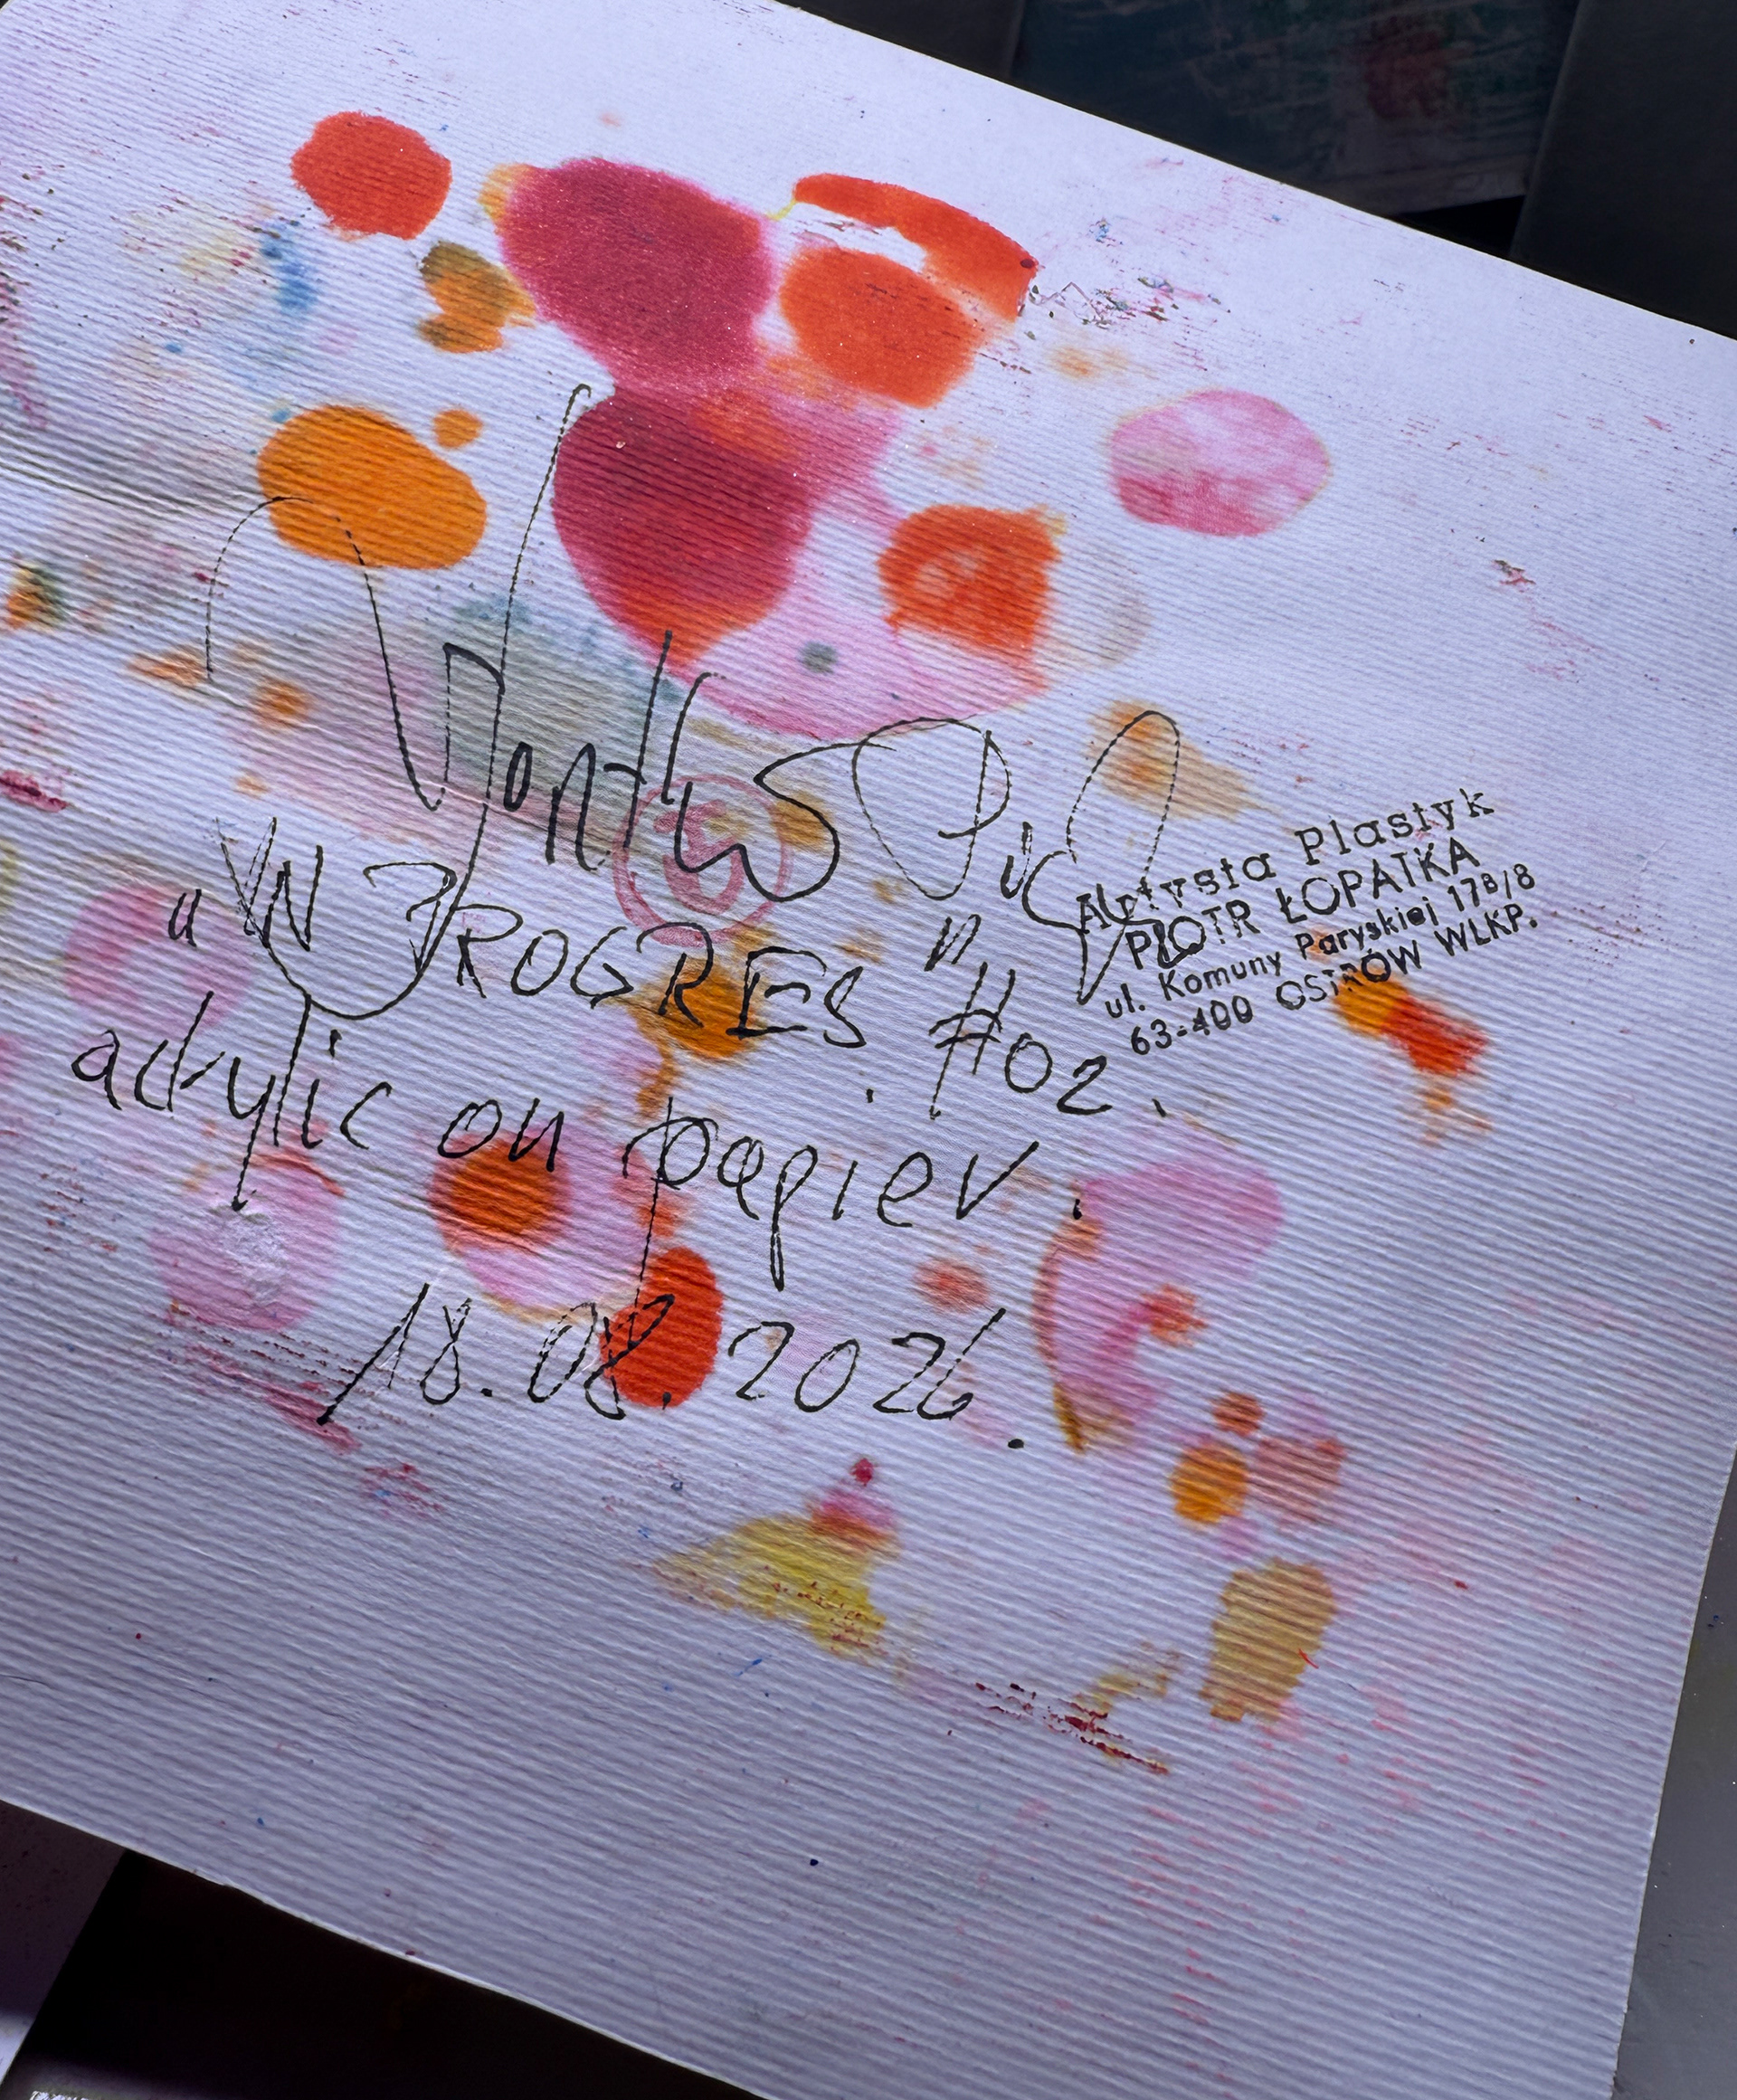 "IN PROGRES" . #02.
ackylic on papier.
18.08.2026.
Artysta Plastyk
PIOTR ŁOPATKA
ul. Komuny Paryskiej 17B/8
63-400 OSTRÓW WLKP.